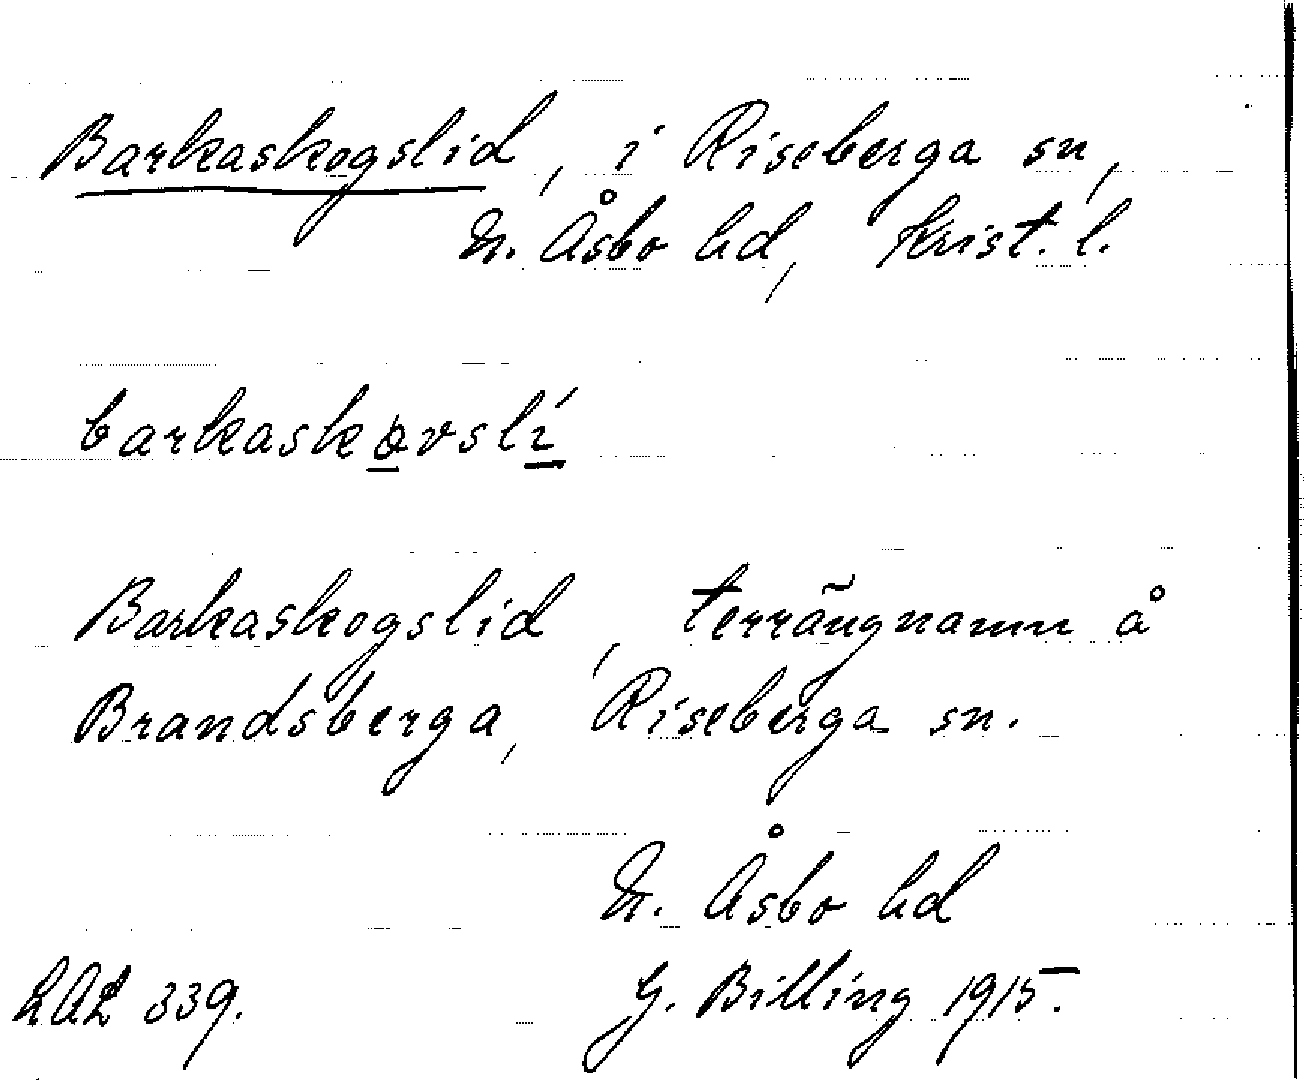 Barkaskogslid, i Riseberga sn,
N. Åsbo hd, Krist. l.
barkaskovslí
Barkaskogslid, terrängnamn å
Brandsberga, Riseberga sn.
N. Åsbo hd
LAL 339. G. Billing 1915.